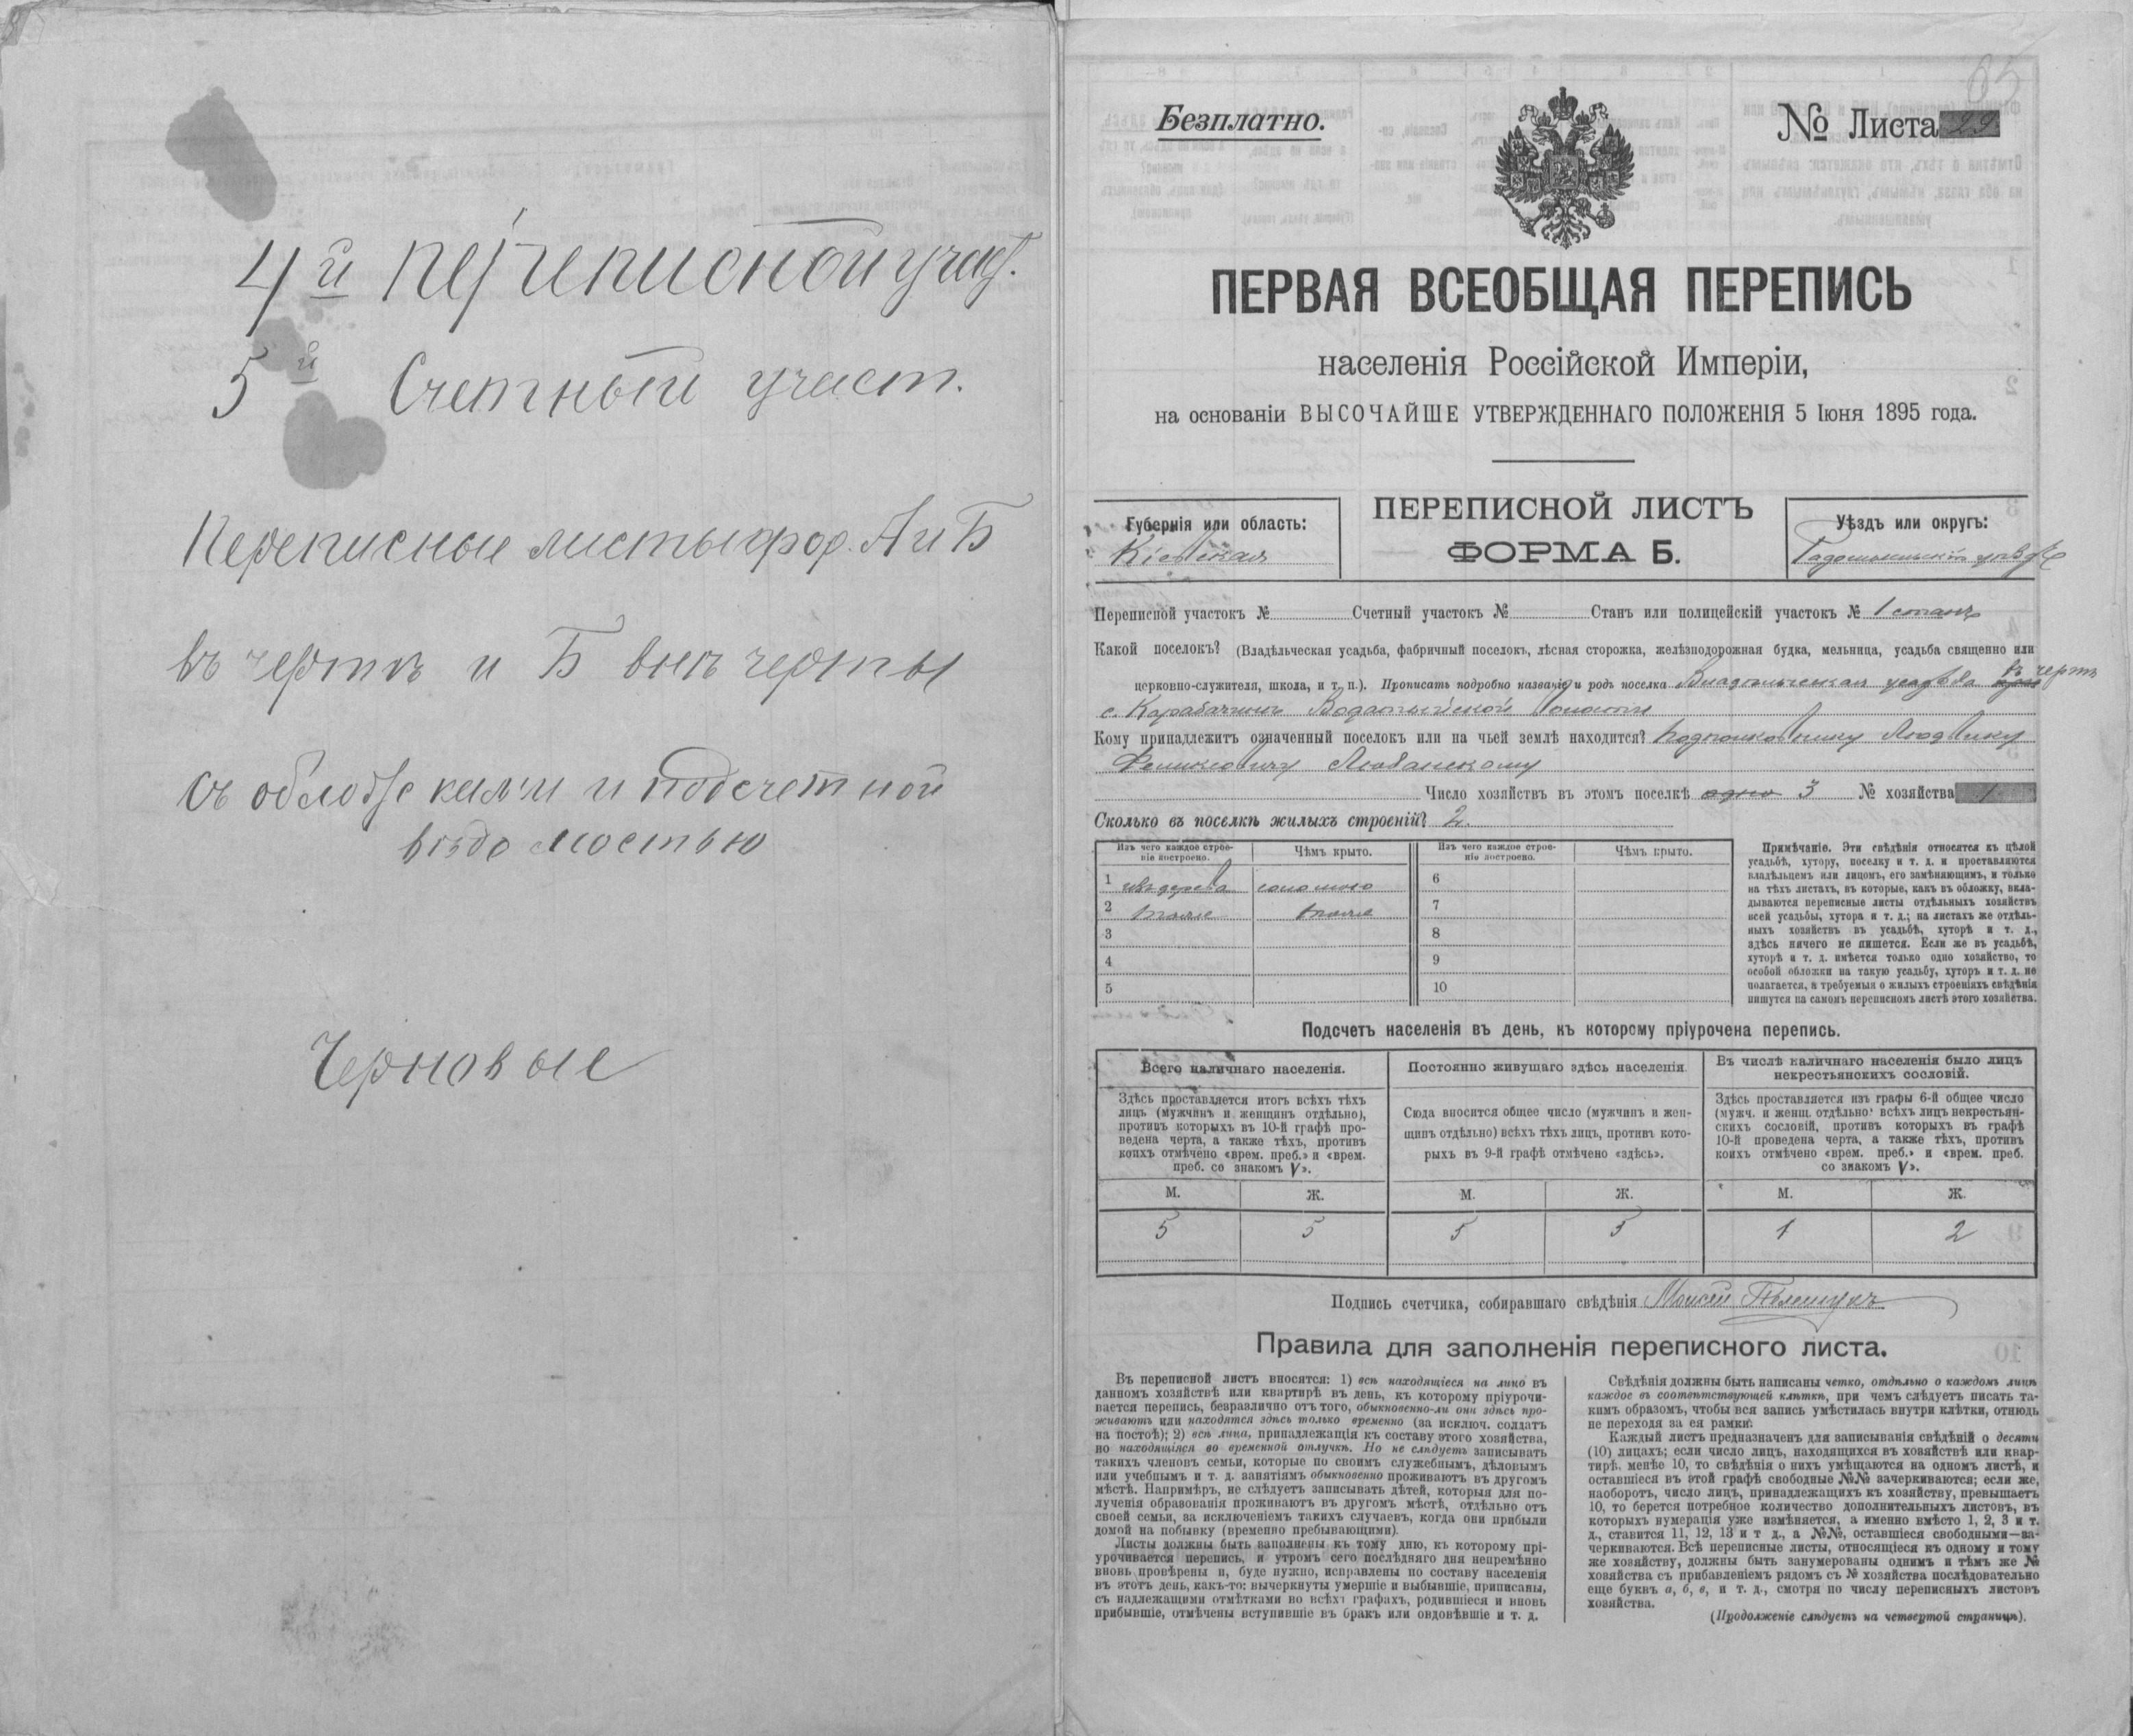 4й переписной участ.
5й Счетный участ.
Переписные листы фор. А и Б
въ чертѣ и Б внѣ черты
съ обложками и подсчетной
вѣдомостью
Черновые
65
Безплатно.
№ Листа 29
ПЕРВАЯ ВСЕОБЩАЯ ПЕРЕПИСЬ
населенія Россійской Имперіи,
на основаніи ВЫСОЧАЙШЕ УТВЕРЖДЕННАГО ПОЛОЖЕНІЯ 5 Іюня 1895 года.
Губернія или область:
Кіевская
ПЕРЕПИСНОЙ ЛИСТЪ
ФОРМА Б.
Уѣздъ или округъ:
Радомысльскій уѣздъ
Переписной участокъ № Счетный участокъ № Станъ или полицейскій участокъ № 1 станъ
Какой поселокъ? (Владѣльческая усадьба, фабричный поселокъ, лѣсная сторожка, желѣзнодорожная будка, мельница, усадьба священно или
церковно-служителя, школа, и т. п.). Прописать подробно названіе и родъ поселка Владѣльческая усадьба въ чертѣ
с. Карабачинъ Водотыйской волости
Кому принадлежитъ означенный поселокъ или на чьей землѣ находится? Подполковнику Людвику
Феликсовичу Любанскому
Число хозяйствъ въ этомъ поселкѣ одно 3 № хозяйства 1
Сколько въ поселкѣ жилыхъ строеній? 2.
Изъ чего каждое строе-
ніе построено.
Чѣмъ крыто.
Изъ чего каждое строе-
ніе построено.
Чѣмъ крыто.
1 изъ дерева соломою
2 тоже тоже
3
4
5
6
7
8
9
10
Примѣчаніе. Эти свѣдѣнія относятся къ цѣлой
усадьбѣ, хутору, поселку и т. д. и проставляются
владѣльцемъ или лицомъ, его замѣняющимъ, и только
на тѣхъ листахъ, въ которые, какъ въ обложку, вкла-
дываются переписные листы отдѣльныхъ хозяйствъ
всей усадьбы, хутора и т. д.; на листахъ же отдѣль-
ныхъ хозяйствъ въ усадьбѣ, хуторѣ и т. д.,
здѣсь ничего не пишется. Если же въ усадьбѣ,
хуторѣ и т. д. имѣется только одно хозяйство, то
особой обложки на такую усадьбу, хуторъ и т. д. не
полагается, а требуемыя о жилыхъ строеніяхъ свѣдѣнія
пишутся на самомъ переписномъ листѣ этого хозяйства.
Подсчетъ населенія въ день, къ которому пріурочена перепись.
Всего наличнаго населенія.
Здѣсь проставляется итогъ всѣхъ тѣхъ
лицъ (мужчинъ и женщинъ отдѣльно),
противъ которыхъ въ 10-й графѣ про-
ведена черта, а также тѣхъ, противъ
коихъ отмѣчено «врем. преб.» и «врем.
преб. со знакомъ V».
Постоянно живущаго здѣсь населенія.
Сюда вносится общее число (мужчинъ и жен-
щинъ отдѣльно) всѣхъ тѣхъ лицъ, противъ кото-
рыхъ въ 9-й графѣ отмѣчено «здѣсь».
Въ числѣ наличнаго населенія было лицъ
некрестьянскихъ сословій.
Здѣсь проставляется изъ графы 6-й общее число
(мужч. и женщ. отдѣльно) всѣхъ лицъ некрестьян-
скихъ сословій, противъ которыхъ въ графѣ
10-й проведена черта, а также тѣхъ, противъ
коихъ отмѣчено «врем. преб.» и «врем. преб.
со знакомъ V».
М. Ж. М. Ж. М. Ж.
5 5 5 5 1 2
Подпись счетчика, собиравшаго свѣдѣнія Моисей
Правила для заполненія переписного листа.
Въ переписной листъ вносятся: 1) всѣ находящіеся на лицо въ
данномъ хозяйствѣ или квартирѣ въ день, къ которому пріурочи-
вается перепись, безразлично отъ того, обыкновенно-ли они здѣсь про-
живаютъ или находятся здѣсь только временно (за исключ. солдатъ
на постоѣ); 2) всѣ лица, принадлежащія къ составу этого хозяйства,
но находящіяся во временной отлучкѣ. Но не слѣдуетъ записывать
такихъ членовъ семьи, которые по своимъ служебнымъ, дѣловымъ
или учебнымъ и т. д. занятіямъ обыкновенно проживаютъ въ другомъ
мѣстѣ. Напримѣръ, не слѣдуетъ записывать дѣтей, которыя для по-
лученія образованія проживаютъ въ другомъ мѣстѣ, отдѣльно отъ
своей семьи, за исключеніемъ такихъ случаевъ, когда они прибыли
домой на побывку (временно пребывающими).
Листы должны быть заполнены къ тому дню, къ которому прі-
урочивается перепись, и утромъ сего послѣдняго дня непремѣнно
вновь провѣрены и, буде нужно, исправлены по составу населенія
въ этотъ день, какъ-то: вычеркнуты умершіе и выбывшіе, приписаны,
съ надлежащими отмѣтками во всѣхъ графахъ, родившіеся и вновь
прибывшіе, отмѣчены вступившіе въ бракъ или овдовѣвшіе и т. д.
Свѣдѣнія должны быть написаны четко, отдѣльно о каждомъ лицѣ
каждое въ соотвѣтствующей клѣткѣ, при чемъ слѣдуетъ писать та-
кимъ образомъ, чтобы вся запись умѣстилась внутри клѣтки, отнюдь
не переходя за ея рамки.
Каждый листъ предназначенъ для записыванія свѣдѣній о десяти
(10) лицахъ; если число лицъ, находящихся въ хозяйствѣ или квар-
тирѣ. менѣе 10, то свѣдѣнія о нихъ умѣщаются на одномъ листѣ, и
оставшіеся въ этой графѣ свободные №№ зачеркиваются; если же,
наоборотъ, число лицъ, принадлежащихъ къ хозяйству, превышаетъ
10, то берется потребное количество дополнительныхъ листовъ, въ
которыхъ нумерація уже измѣняется, а именно вмѣсто 1, 2, 3 и т.
д., ставится 11, 12, 13 и т д., а №№, оставшіеся свободными—за-
черкиваются. Всѣ переписные листы, относящіеся къ одному и тому
же хозяйству, должны быть занумерованы однимъ и тѣмъ же №
хозяйства съ прибавленіемъ рядомъ съ № хозяйства послѣдовательно
еще буквъ а, б, в, и т. д., смотря по числу переписныхъ листовъ
хозяйства.
(Продолженіе слѣдуетъ на четвертой страницѣ).